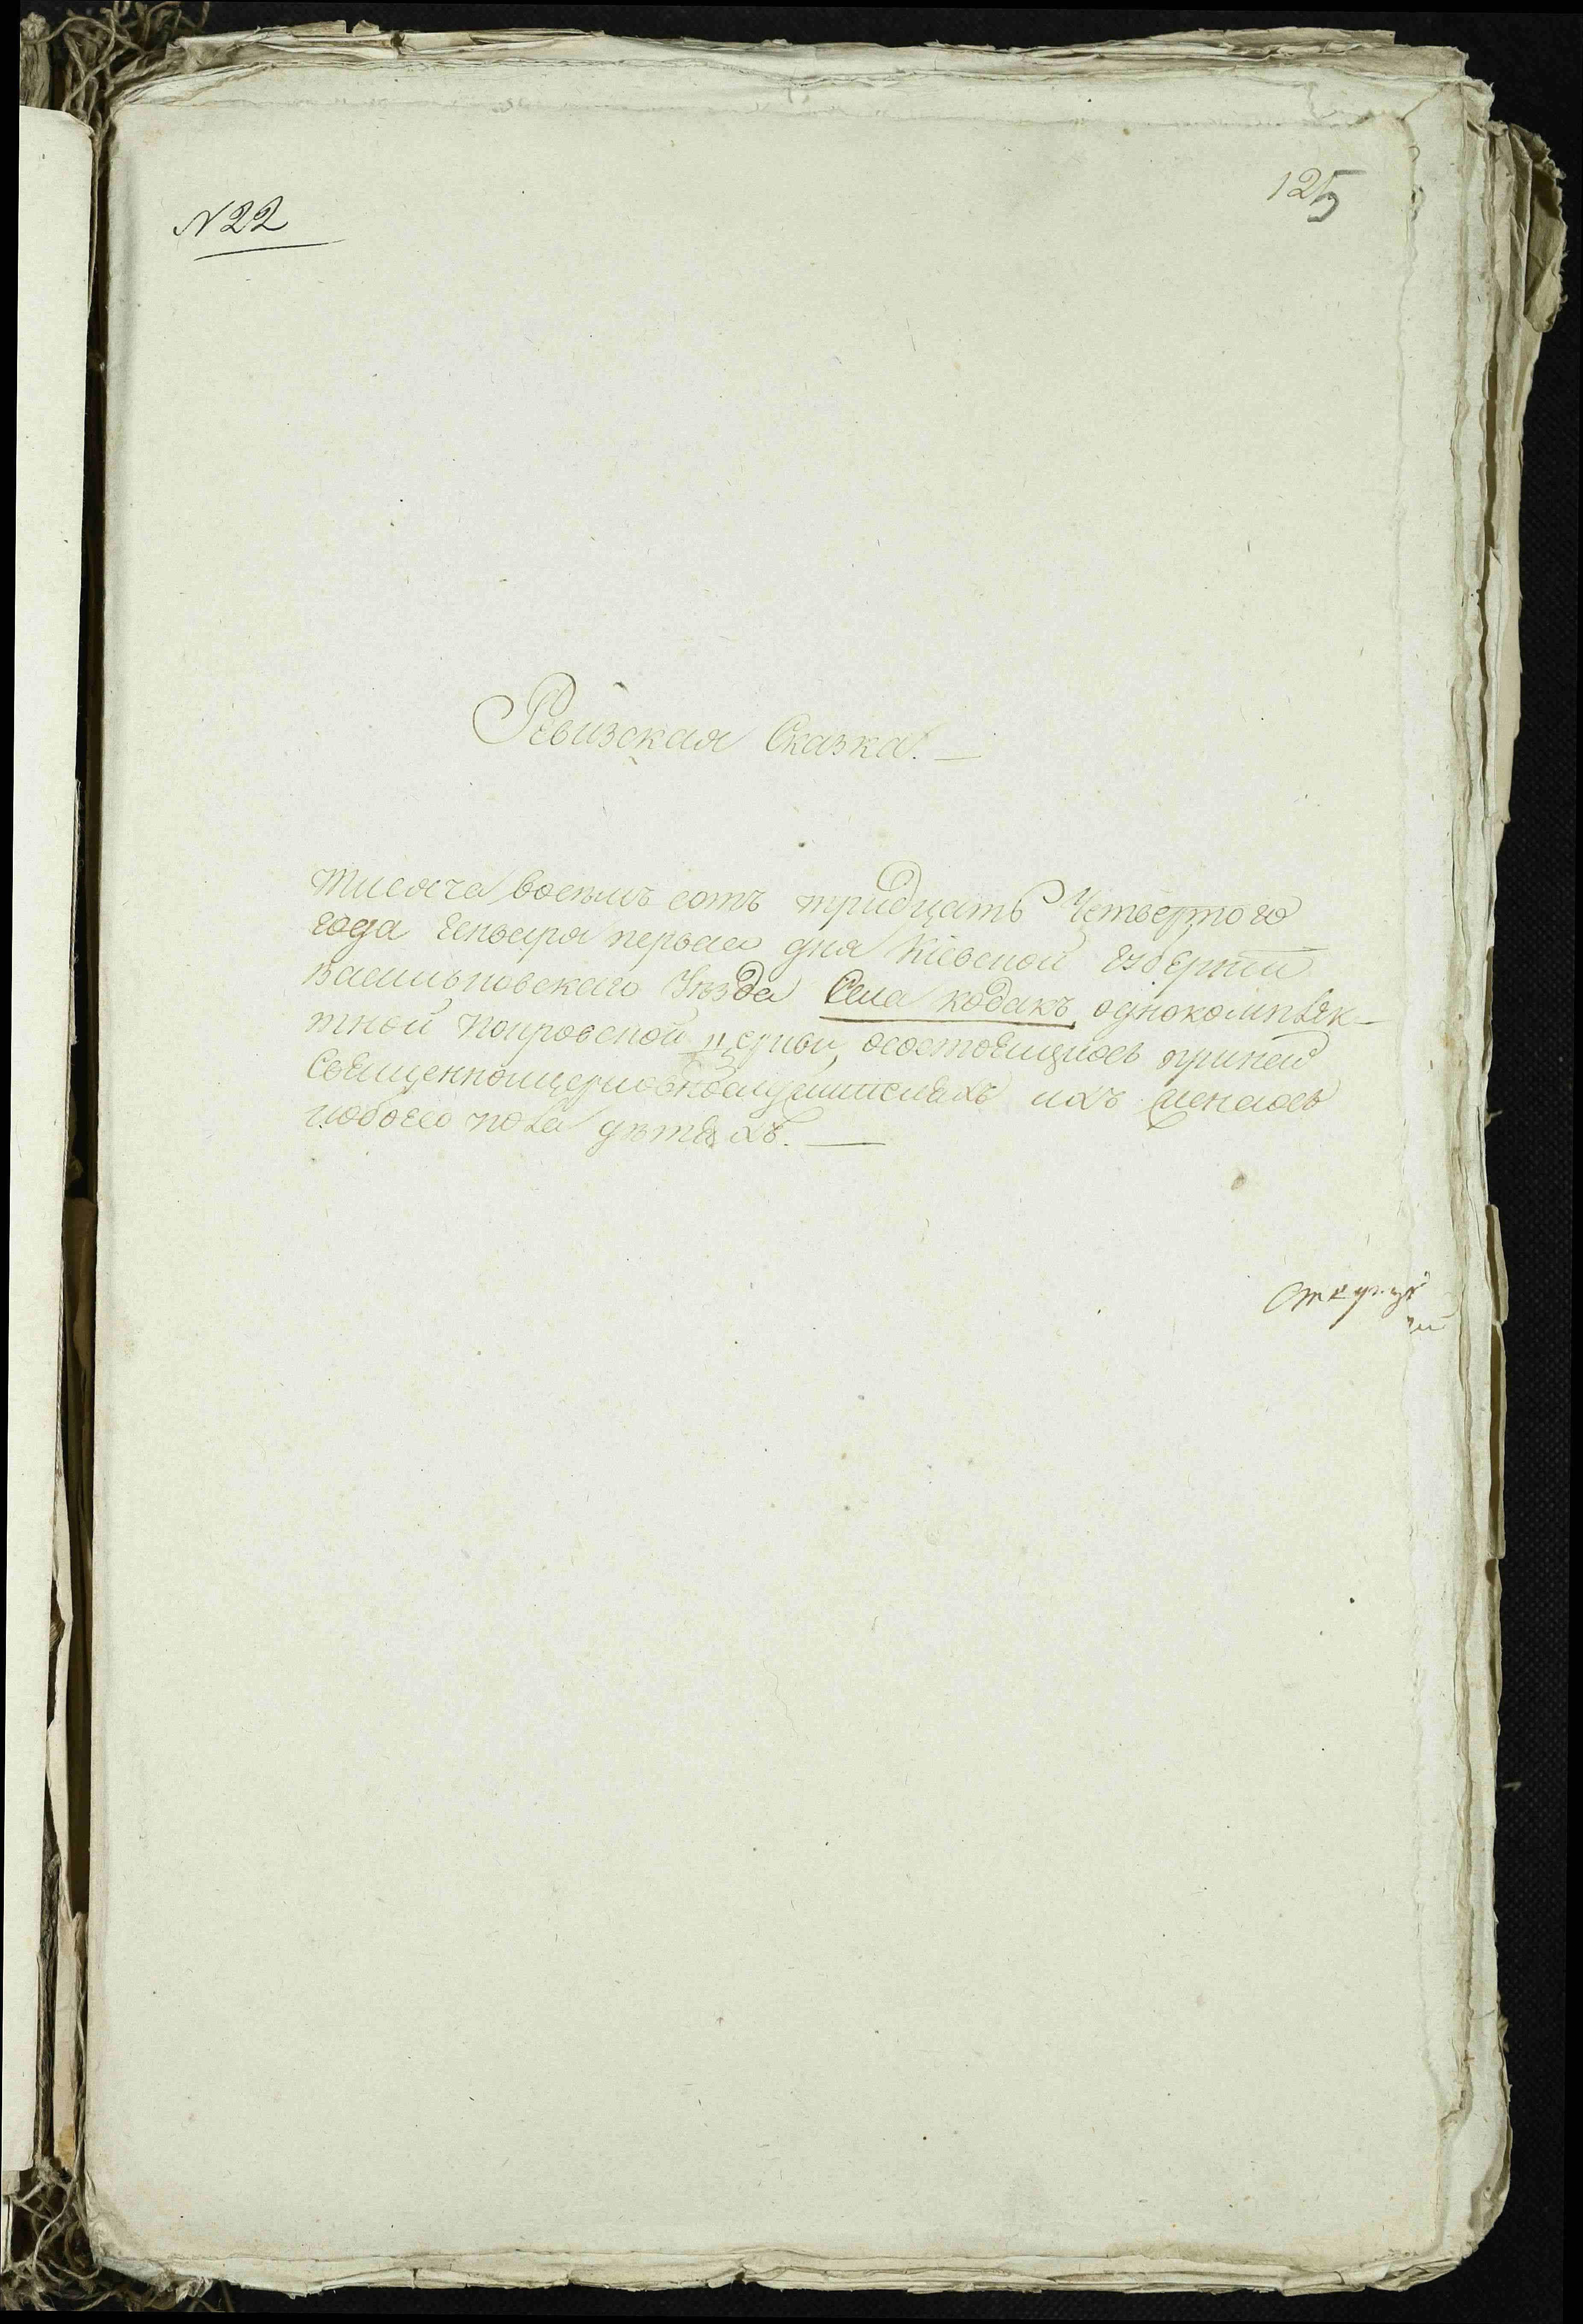 N 22
125
Ревизская Сказка. —
Тисяча восемъ сотъ тридцать Четвертого
года Генваря перваго дня Кіевской Губерніи
Васильковскаго Уезда Села Кодакъ однокомплек-
тной Покровской церкви, осостоящихъ приней
Священноцерковнослужителяхъ ихъ женахъ
иобоего пола детяхъ. —